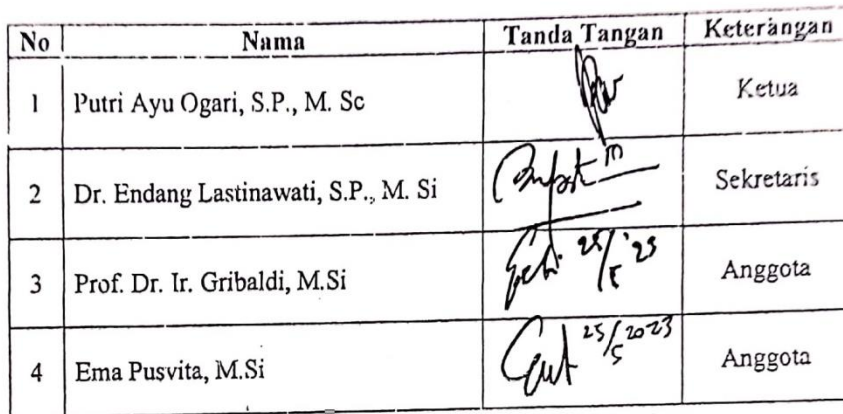 No Nama Tanda Tangan Keterangan
1 Putri Ayu Ogari, S.P., M. Sc Ketua
2 Dr. Endang Lastinawati, S.P., M. Si Sekretaris
3 Prof. Dr. Ir. Gribaldi, M.Si 25/5 '23 Anggota
4 Ema Pusvita, M.Si 25/5 2023 Anggota